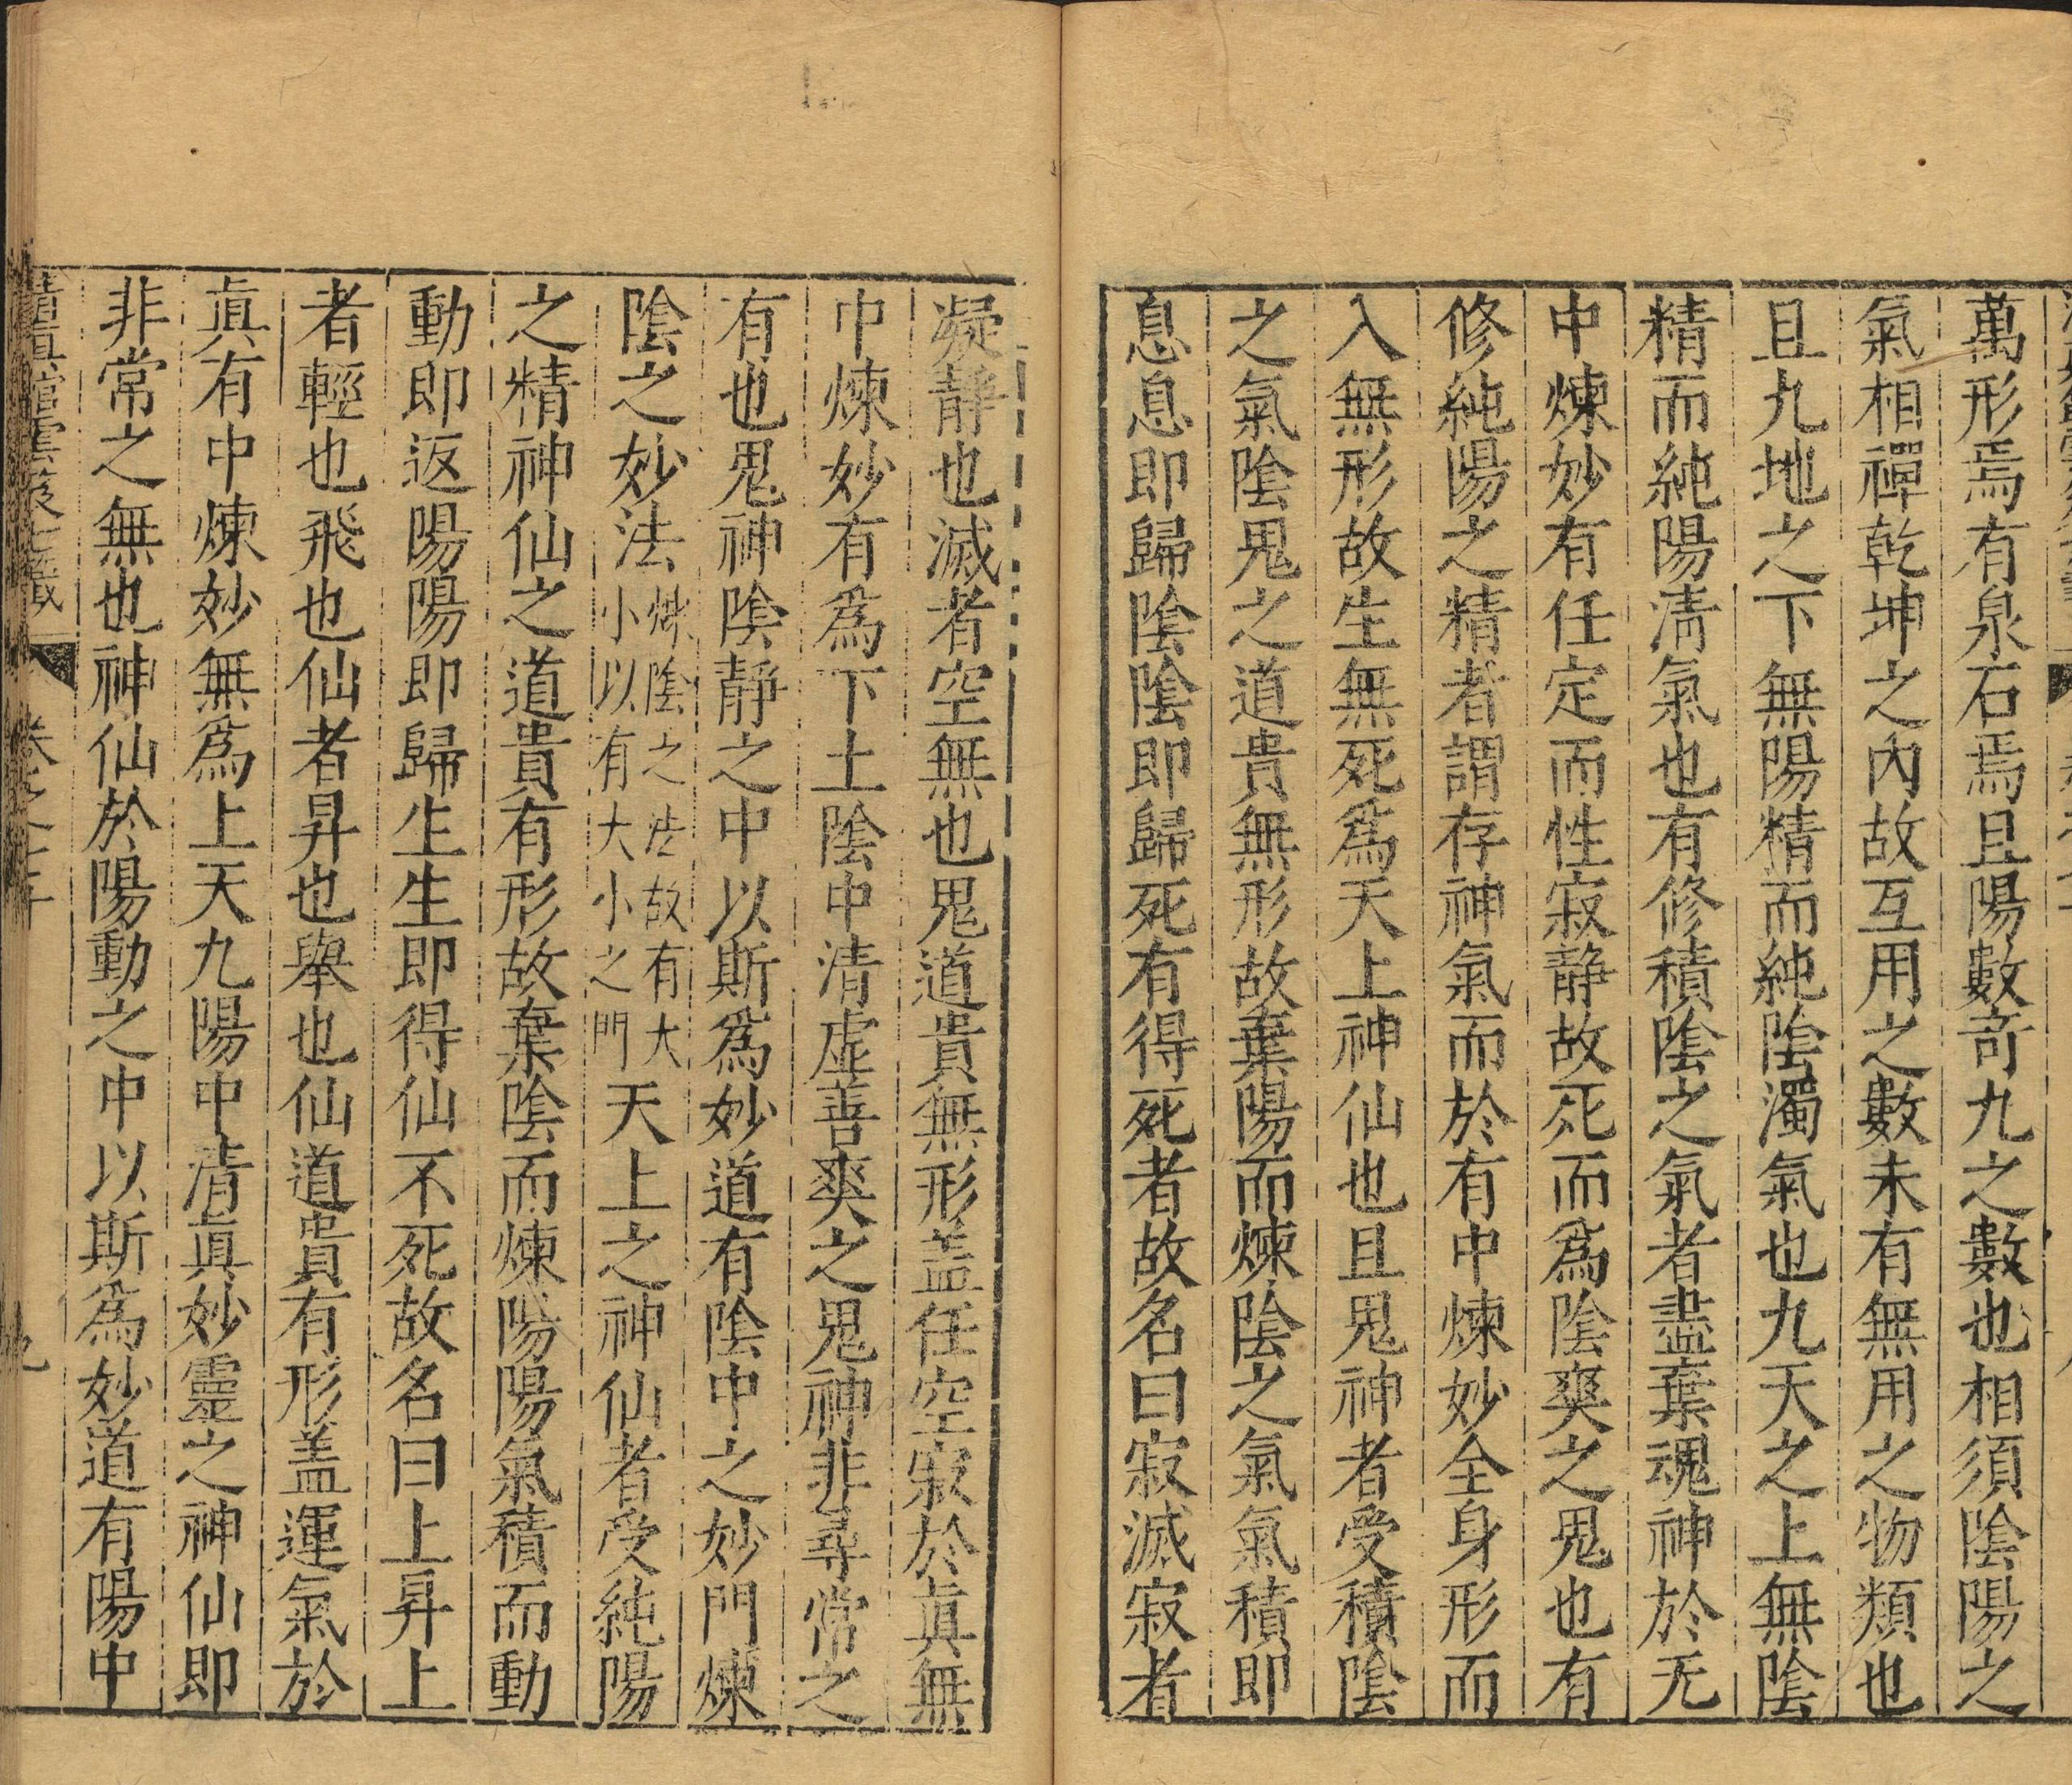 萬形焉有泉石焉且陽數竒九之數也相須陰陽之
氣相禪乾坤之內故互用之數未有無用之物類也
且九地之下無陽精而純陰濁氣也九天之上無陰
精而純陽淸氣也有修積陰之氣者盡棄魂神於无
中煉妙有任定而性寂静故死而爲陰爽之鬼也有
修純陽之精者謂存神氣而於有中煉妙全身形而
入無形故生無死爲天上神仙也且鬼神者受積陰
之氣陰鬼之道貴無形故棄陽而煉陰之氣氣積即
息息即歸陰陰即歸死有得死者故名曰寂滅寂者
凝靜也滅者空無也鬼道貴無形盖任空寂於真無
中煉妙有爲下土陰中清虛善爽之鬼神非尋常之
有也鬼神陰靜之中以斯爲妙道有陰中之妙門煉
陰之妙法煉陰之法故有大小以有大小之門天上之神仙者受純陽
之精神仙之道貴有形故棄陰而煉陽陽氣積而動
動即返陽陽即歸生生即得仙不死故名曰上昇上
者輕也飛也仙者昇也舉也仙道貴有形盖運氣於
真有中煉妙無爲上天九陽中清真妙靈之神仙即
非常之無也神仙於陽動之中以斯爲妙道有陽中